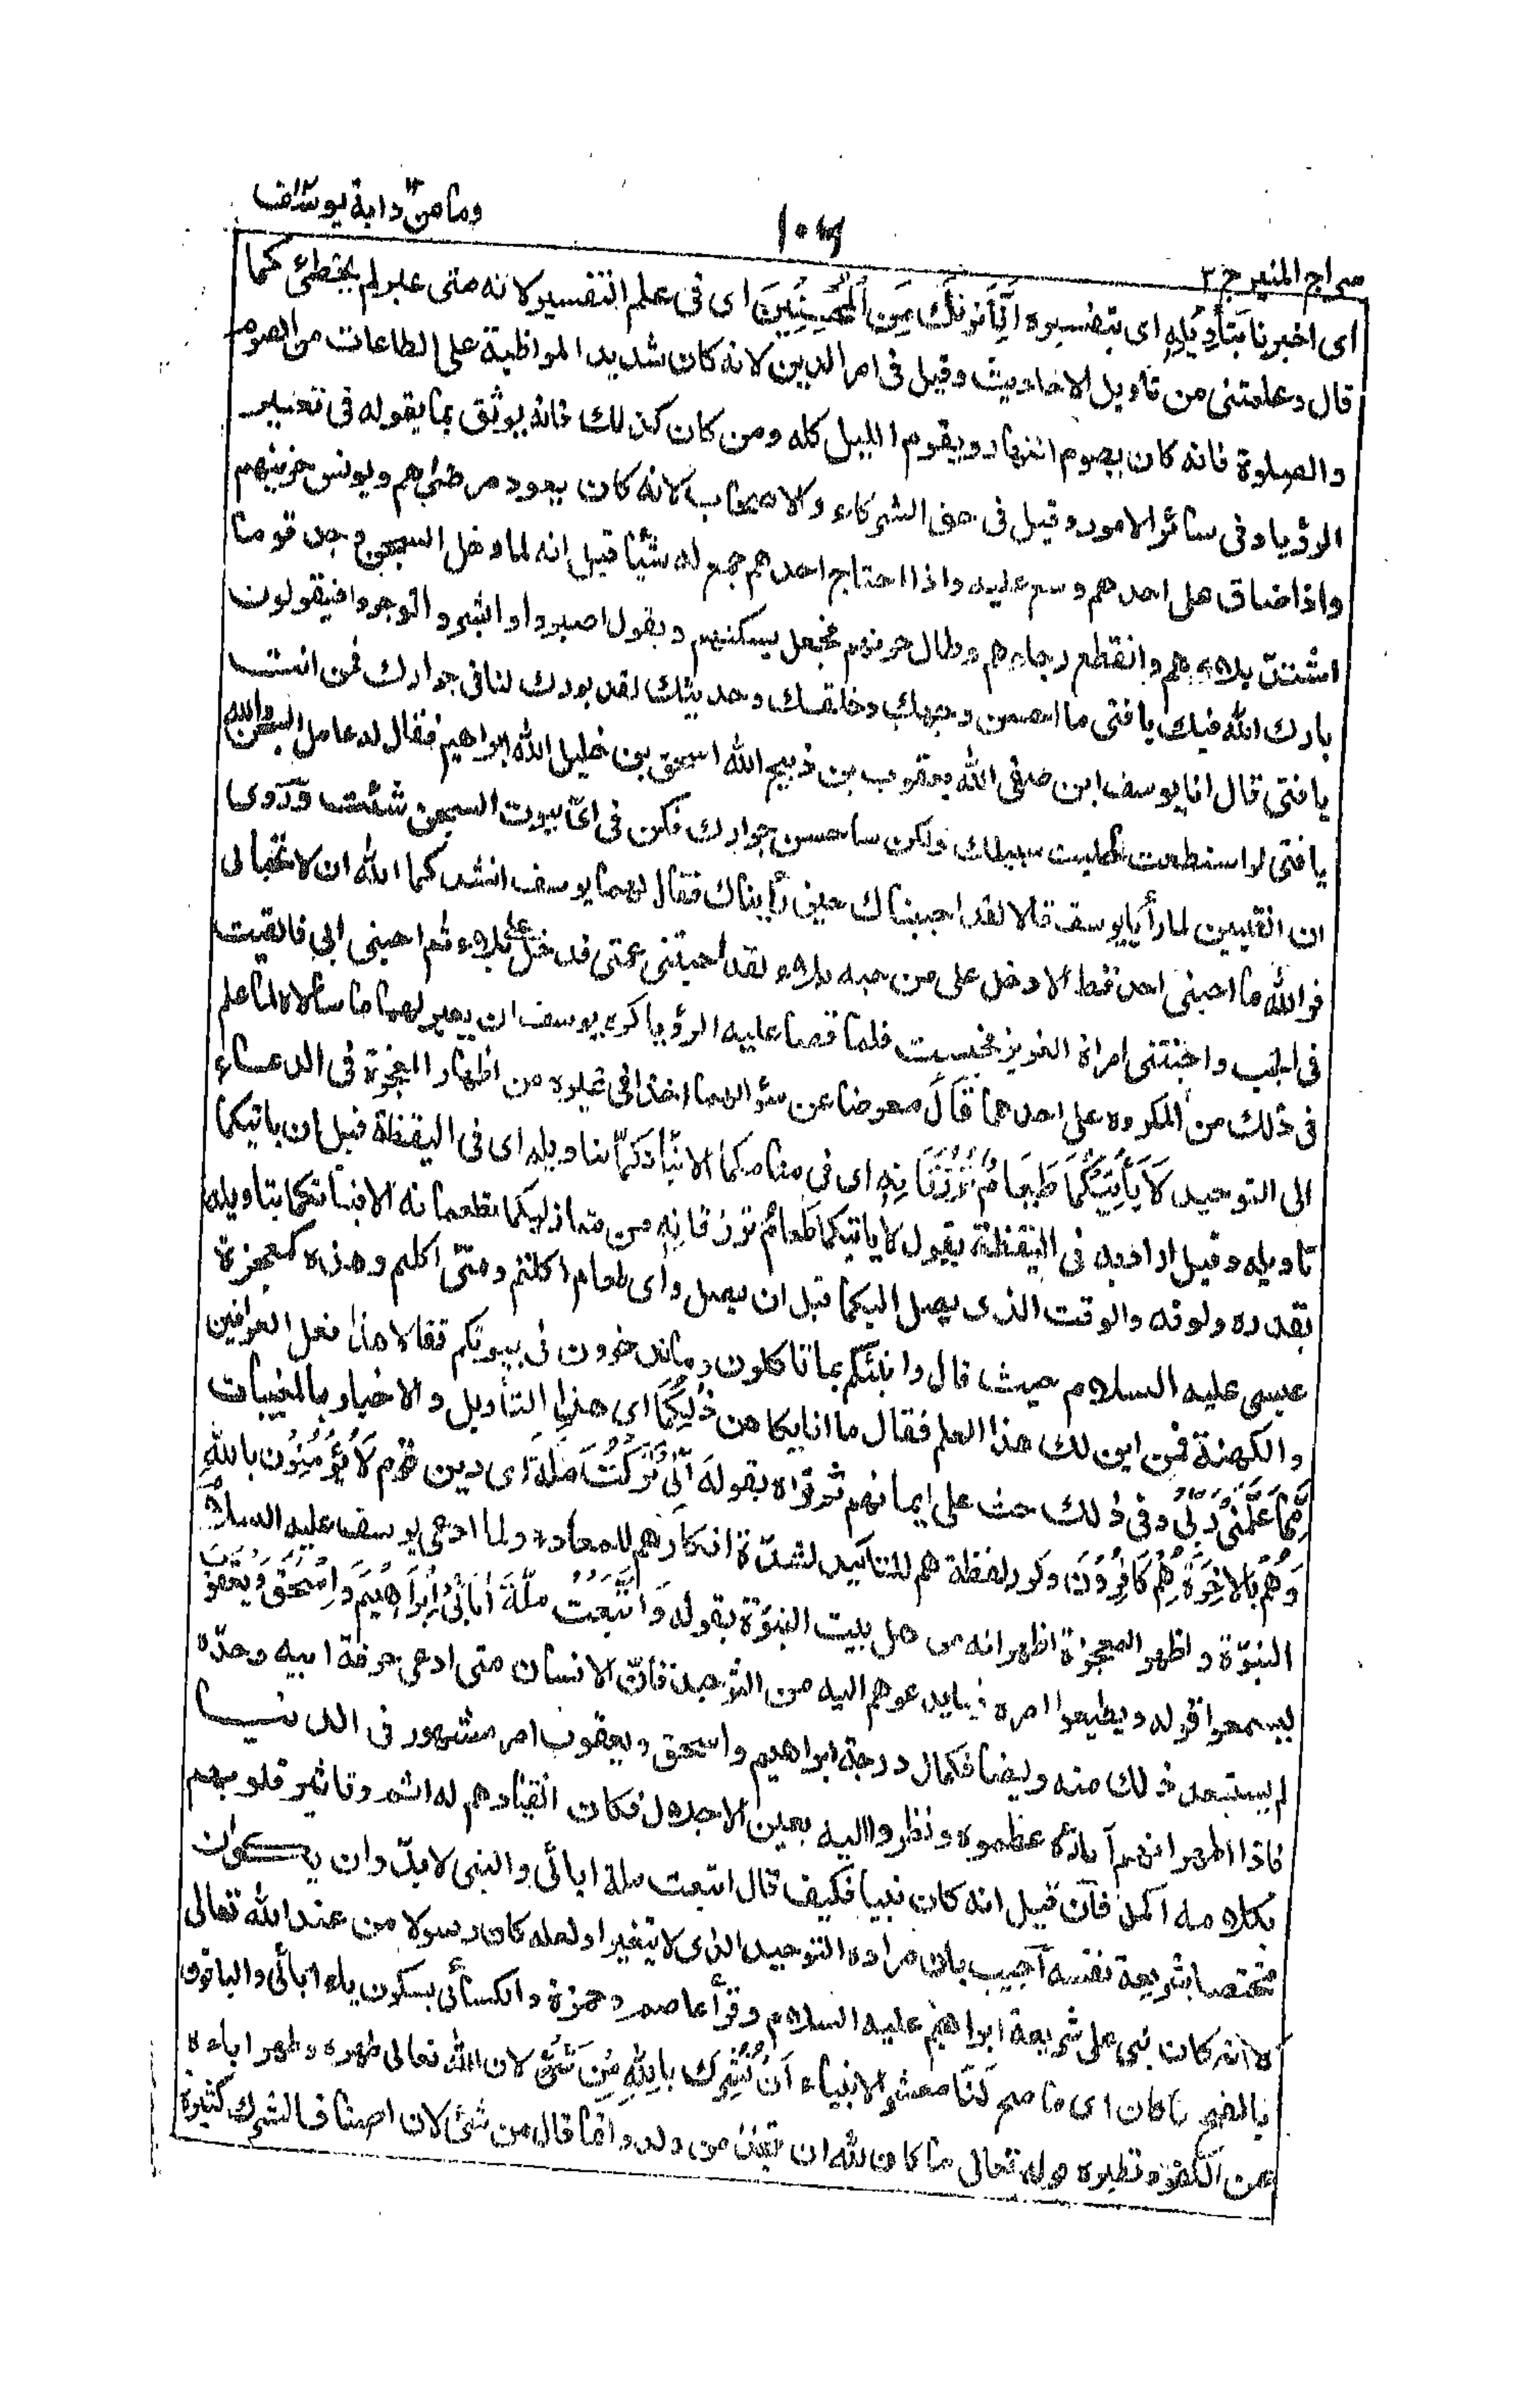 وما من دابة ١٢ يوسف
١٠٦
سراج المنير ج ٢
اى اخبرنا بِتَأْوِيْلِهٖ اى بتفسيره اِنَّا نَرٰىكَ مِنَ الْمُحْسِنِيْنَ اى فى علم التفسير لانه متى عبر لم يخطئ كما
قال وعلمتنى من تأويل الاحاديث وقيل فى امر الدين لانه كان شديد المواظبة على الطاعات من الصوم
والصلوة فانه كان يصوم النهار ويقوم الليل كله ومن كان كذلك فانه يوثق بما يقوله فى تعبير
الرؤيا وفى سائر الامور وقيل فى حق الشركاء والاصحاب لانه كان يعود مرضاهم ويونس حزينهم
واذا ضاق على احدهم وسع عليه واذا احتاج احدهم جمع له شيًا قيل انه لما دخل السجن وجد قوما
اشتدّ بلاؤهم وانقطع رجاؤهم وطال حزنهم فجعل يسكنهم ويقول اصبروا وابشروا توجروا فيقولون
بارك الله فيك يا فتى ما احسن وجهك وخلقك وحديثك لقد بورك لنا فى جوارك فمن انت
يا فتى قال انا يوسف ابن صفى الله يعقوب بن ذبيح الله اسحق بن خليل الله ابراهيم فقال له عامل السجن والله
يا فتى لو استطعت لخليت سبيلك ولكن ساحسن جوارك فكن فى اىّ بيوت السجن شئت وروى
ان الفتيين لما رأيا يوسف قالا لقد احببناك حين رأيناك فقال لهما يوسف انشدكما الله ان لا تحبانى
فوالله ما احبنى احد قط الا دخل على من حبه بلاء لقد احبتنى عمتى فدخل علىّ بلاء ثم احبنى ابى فالقيت
فى الجب واحبتنى امراة العزيز فحبست فلما قصا عليه الرؤيا كره يوسف ان يعبر لهما ما سألاه لما علم
فى ذلك من المكروه على احدهما قَالَ معرضا عن سؤالهما اخذا فى غيره من اظهار المعجزة فى الدعاء
الى التوحيد لَا يَأْتِيْكُمَا طَعَامٌ تُرْزَقٰنِهٖ اى فى منامكما الا نَبَّأْتُكُمَا بتاويله اى فى اليقظة قبل ان ياتيكما
تاويله وقيل اراد به فى اليقظة يقول لا ياتيكما طعام ترزقانه من منازلكما تطعمانه الا نبأتكما بتاويله
بقدره ولونه والوقت الذى يصل اليكما قبل ان يصل واى طعام اكلتم ومتى اكلتم وهذه كمعجزة
عيسى عليه السلام حيث قال وانبئكم بما تاكلون وما تدخرون فى بيوتكم فقالا هذا فعل العرافين
والكهنة فمن اين لك هذا العلم فقال ما انا بكاهن ذٰلِكُمَا اى هذا التأويل والاخبار بالمغيبات
مِمَّا عَلَّمَنِىْ رَبِّىْ وفى ذلك حث على ايمانهم ثم قواه بقوله اِنِّىْ تَرَكْتُ مِلَّةَ اى دين قَوْمٍ لَّا يُؤْمِنُوْنَ بِاللّٰهِ
وَهُمْ بِالْاٰخِرَةِ هُمْ كَافِرُوْنَ وكرر لفظة هم للتأكيد لشدّة انكارهم للمعاد ولما ادعى يوسف عليه السلام
النبوّة واظهر المعجزة اظهر انه من اهل بيت النبوّة بقوله وَاتَّبَعْتُ مِلَّةَ اٰبَآئِىْ اِبْرَاهِيْمَ وَاِسْحٰقَ وَيَعْقُوْبَ
ليسمعوا قوله ويطيعوا امره فيما يدعوهم اليه من التوحيد فانّ الانسان متى ادعى حرفة ابيه وجدّه
لم يستبعد ذلك منه وايضا فكمال درجة ابراهيم واسحق ويعقوب امر مشهور فى الدنيا
فاذا اظهر انهم آباؤه عظموه ونظروا اليه بعين الاجلال فكان انقيادهم له اشد وتاثير قلوبهم
بكلامه اكمل فان قيل انه كان نبيا فكيف قال اتبعت ملة ابائى والنبى لابدّ وان يكون
مختصا بشريعة نفسه اجيب بان مراده التوحيد الذى لا يتغير او لعله كان رسولا من عند الله تعالى
لا انه كان نبى على شريعة ابراهيم عليه السلام وقرأ عاصم وحمزة والكسائى بسكون ياء ابائى والباقون
بالفتح مَا كان اى ما صح لَنَا معشر الانبياء اَنْ نُّشْرِكَ بِاللّٰهِ مِنْ شَىْءٍ لان الله تعالى طهره وطهر اباءه
عن الكفر ونظيره قوله تعالى ما كان لله ان يتخذ من ولد وانما قال من شئ لان اصناف الشرك كثيرة